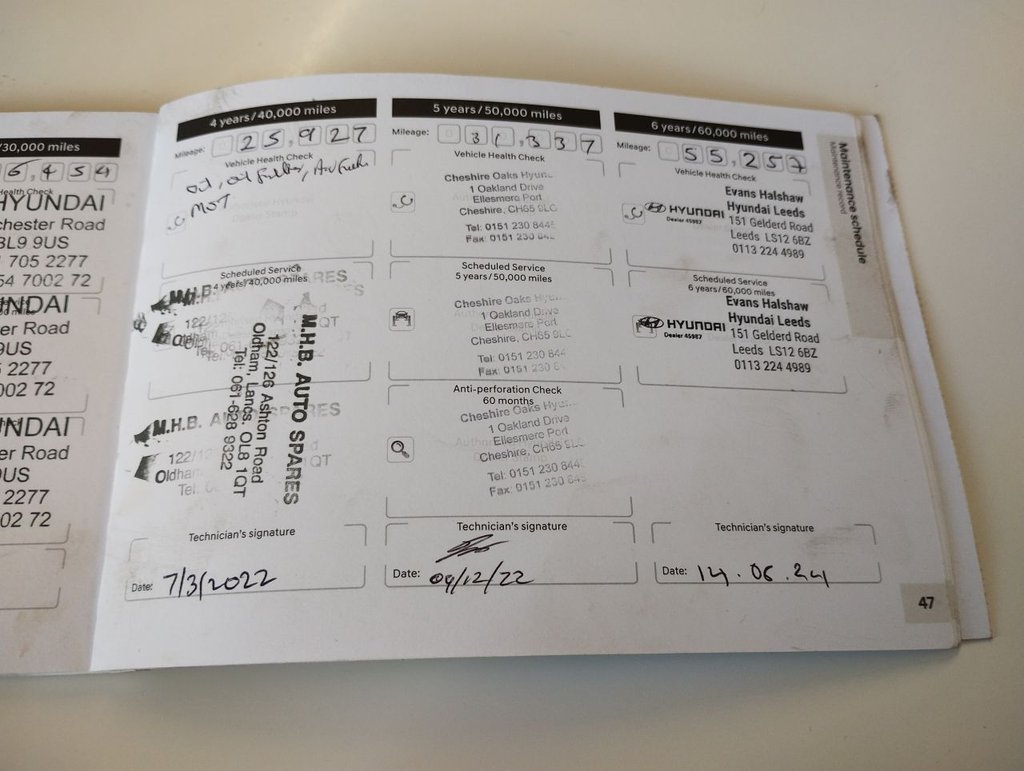 /30,000 miles
6,454
Health Check
HYUNDAI
chester Road
BL9 9US
705 2277
54 7002 72
NDAI
er Road
9US
2277
002 72
NDAI
er Road
9US
2277
02 72
4 years/40,000 miles
Mileage: 25,927
Vehicle Health Check
Oil, Oil Filter, Air
MOT
Scheduled Service
4 years/40,000 miles
M.H.B.
122/126
M.H.B. AUTO SPARES
122/126 Ashton Road
Oldham, Lancs. OL8 1QT
Tel: 061-628 9322
M.H.B.
SPARES
Oldham
Technician's signature
Date: 7/3/2022
5 years/50,000 miles
Mileage: 31,337
Vehicle Health Check
Cheshire Oaks
1 Oakland Drive
Ellesmere Port
Cheshire, CH65
Tel: 0151 230
Fax: 0151 230
Scheduled Service
5 years/50,000 miles
Cheshire Oaks
1 Oakland Drive
Ellesmere Port
Cheshire, CH65
Tel: 0151 230
Fax: 0151 230
Anti-perforation Check
60 months
Cheshire Oaks
1 Oakland Drive
Ellesmere Port
Cheshire, CH65
Tel: 0151 230
Fax: 0151 230
Technician's signature
Date: 09/12/22
6 years/60,000 miles
Mileage: 55,257
Vehicle Health Check
HYUNDAI
Dealer 45987
Evans Halshaw
Hyundai Leeds
151 Gelderd Road
Leeds LS12 6BZ
0113 224 4989
Scheduled Service
6 years/60,000 miles
HYUNDAI
Dealer 45987
Evans Halshaw
Hyundai Leeds
151 Gelderd Road
Leeds LS12 6BZ
0113 224 4989
Technician's signature
Date: 14.06.24
Maintenance schedule
Maintenance record
47